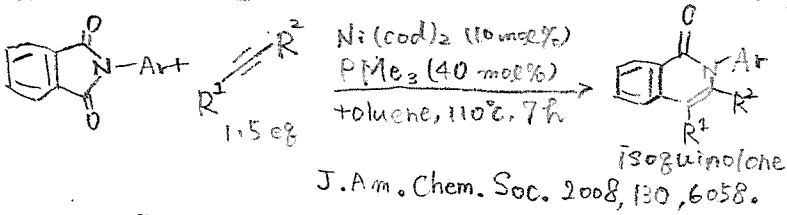 O
N-Ar +
O
R¹
R²
1.5 eq
Ni(cod)₂ (10 mol%)
PMe₃ (40 mol%)
toluene, 110°C, 7h
O
N-Ar
R²
R¹
isoquinolone
J. Am. Chem. Soc. 2008, 130, 6058.